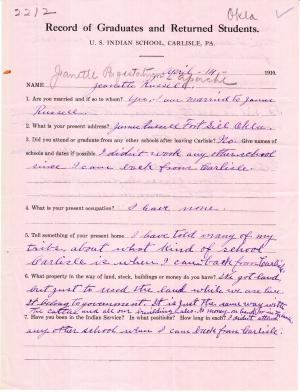 2212
Okla
Record of Graduates and Returned Students.
U. S. INDIAN SCHOOL, CARLISLE, PA.
April 14 1910.
Jeanette Apache
NAME Jeanette Russell
1. Are you married and if so to whom? Yes, I am married to James
Russell.
2. What is your present address? James Russell Fort Sill Okla.
3. Did you attend or graduate from any other schools after leaving Carlisle? No. Give names
of schools and dates if possible. I didn't any other school
since I came back from Carlisle.
4. What is your present occupation? I have none.
5. Tell something of your present home. I have told many of my
tribe about what kind of school
Carlisle is when I came back from Carlisle.
6. What property in the way of land, stock, buildings or money do you have? We got land
but just to used the land while we are here
It belong to government. It is just the same way with
The cattle and all our building also. No money on bank or in
7. Have you been in the Indian Service? In what positions? How long in each? I didn't attend
any other school when I came back from Carlisle.